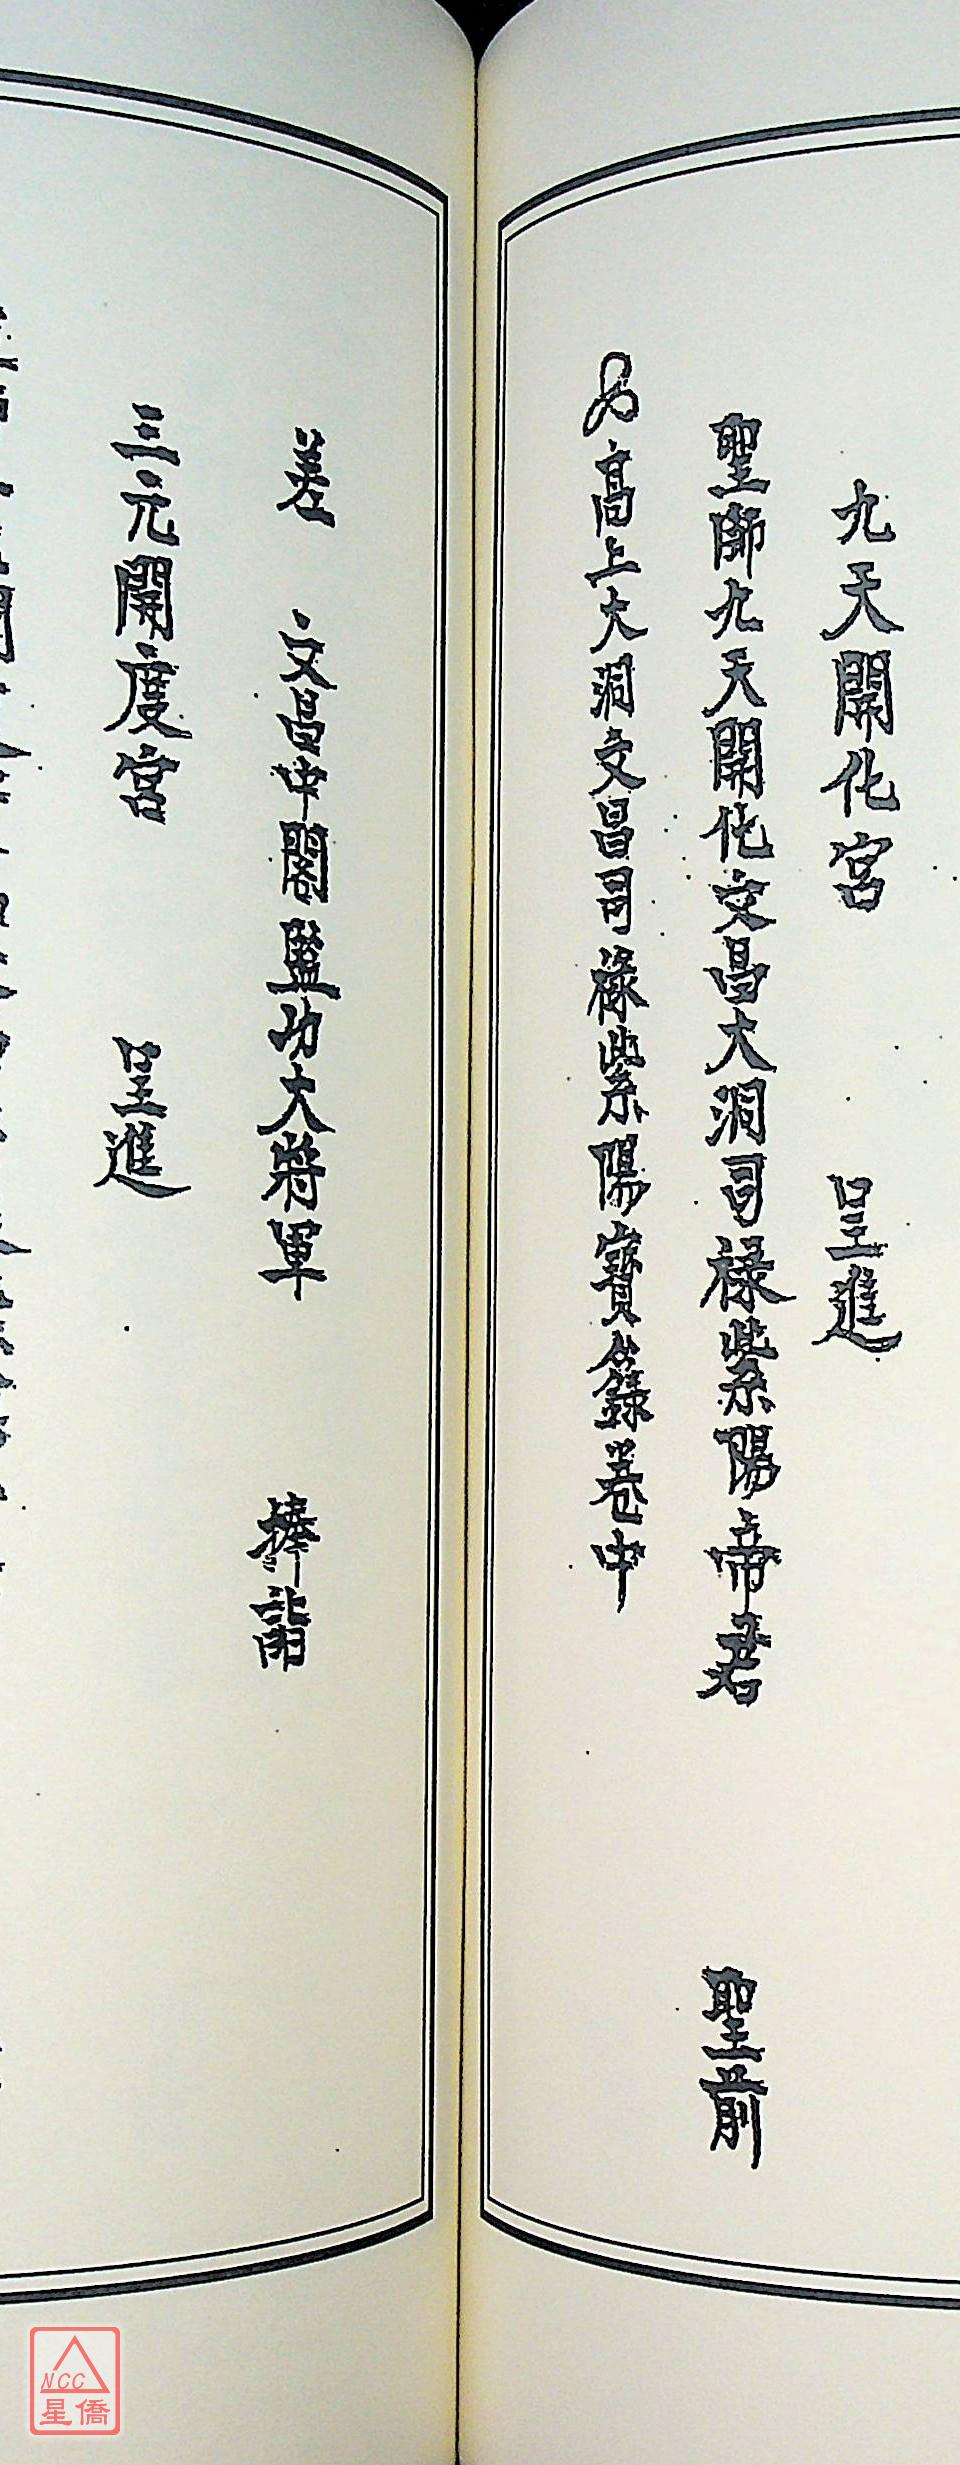 九天開化宮 呈進
聖師九天開化文昌大洞司祿紫陽帝君 聖前
高上大洞文昌司祿紫陽寶籙卷中
差 文昌中閣監功大將軍 捧詣
三元開度宮 呈進
NCC
星僑